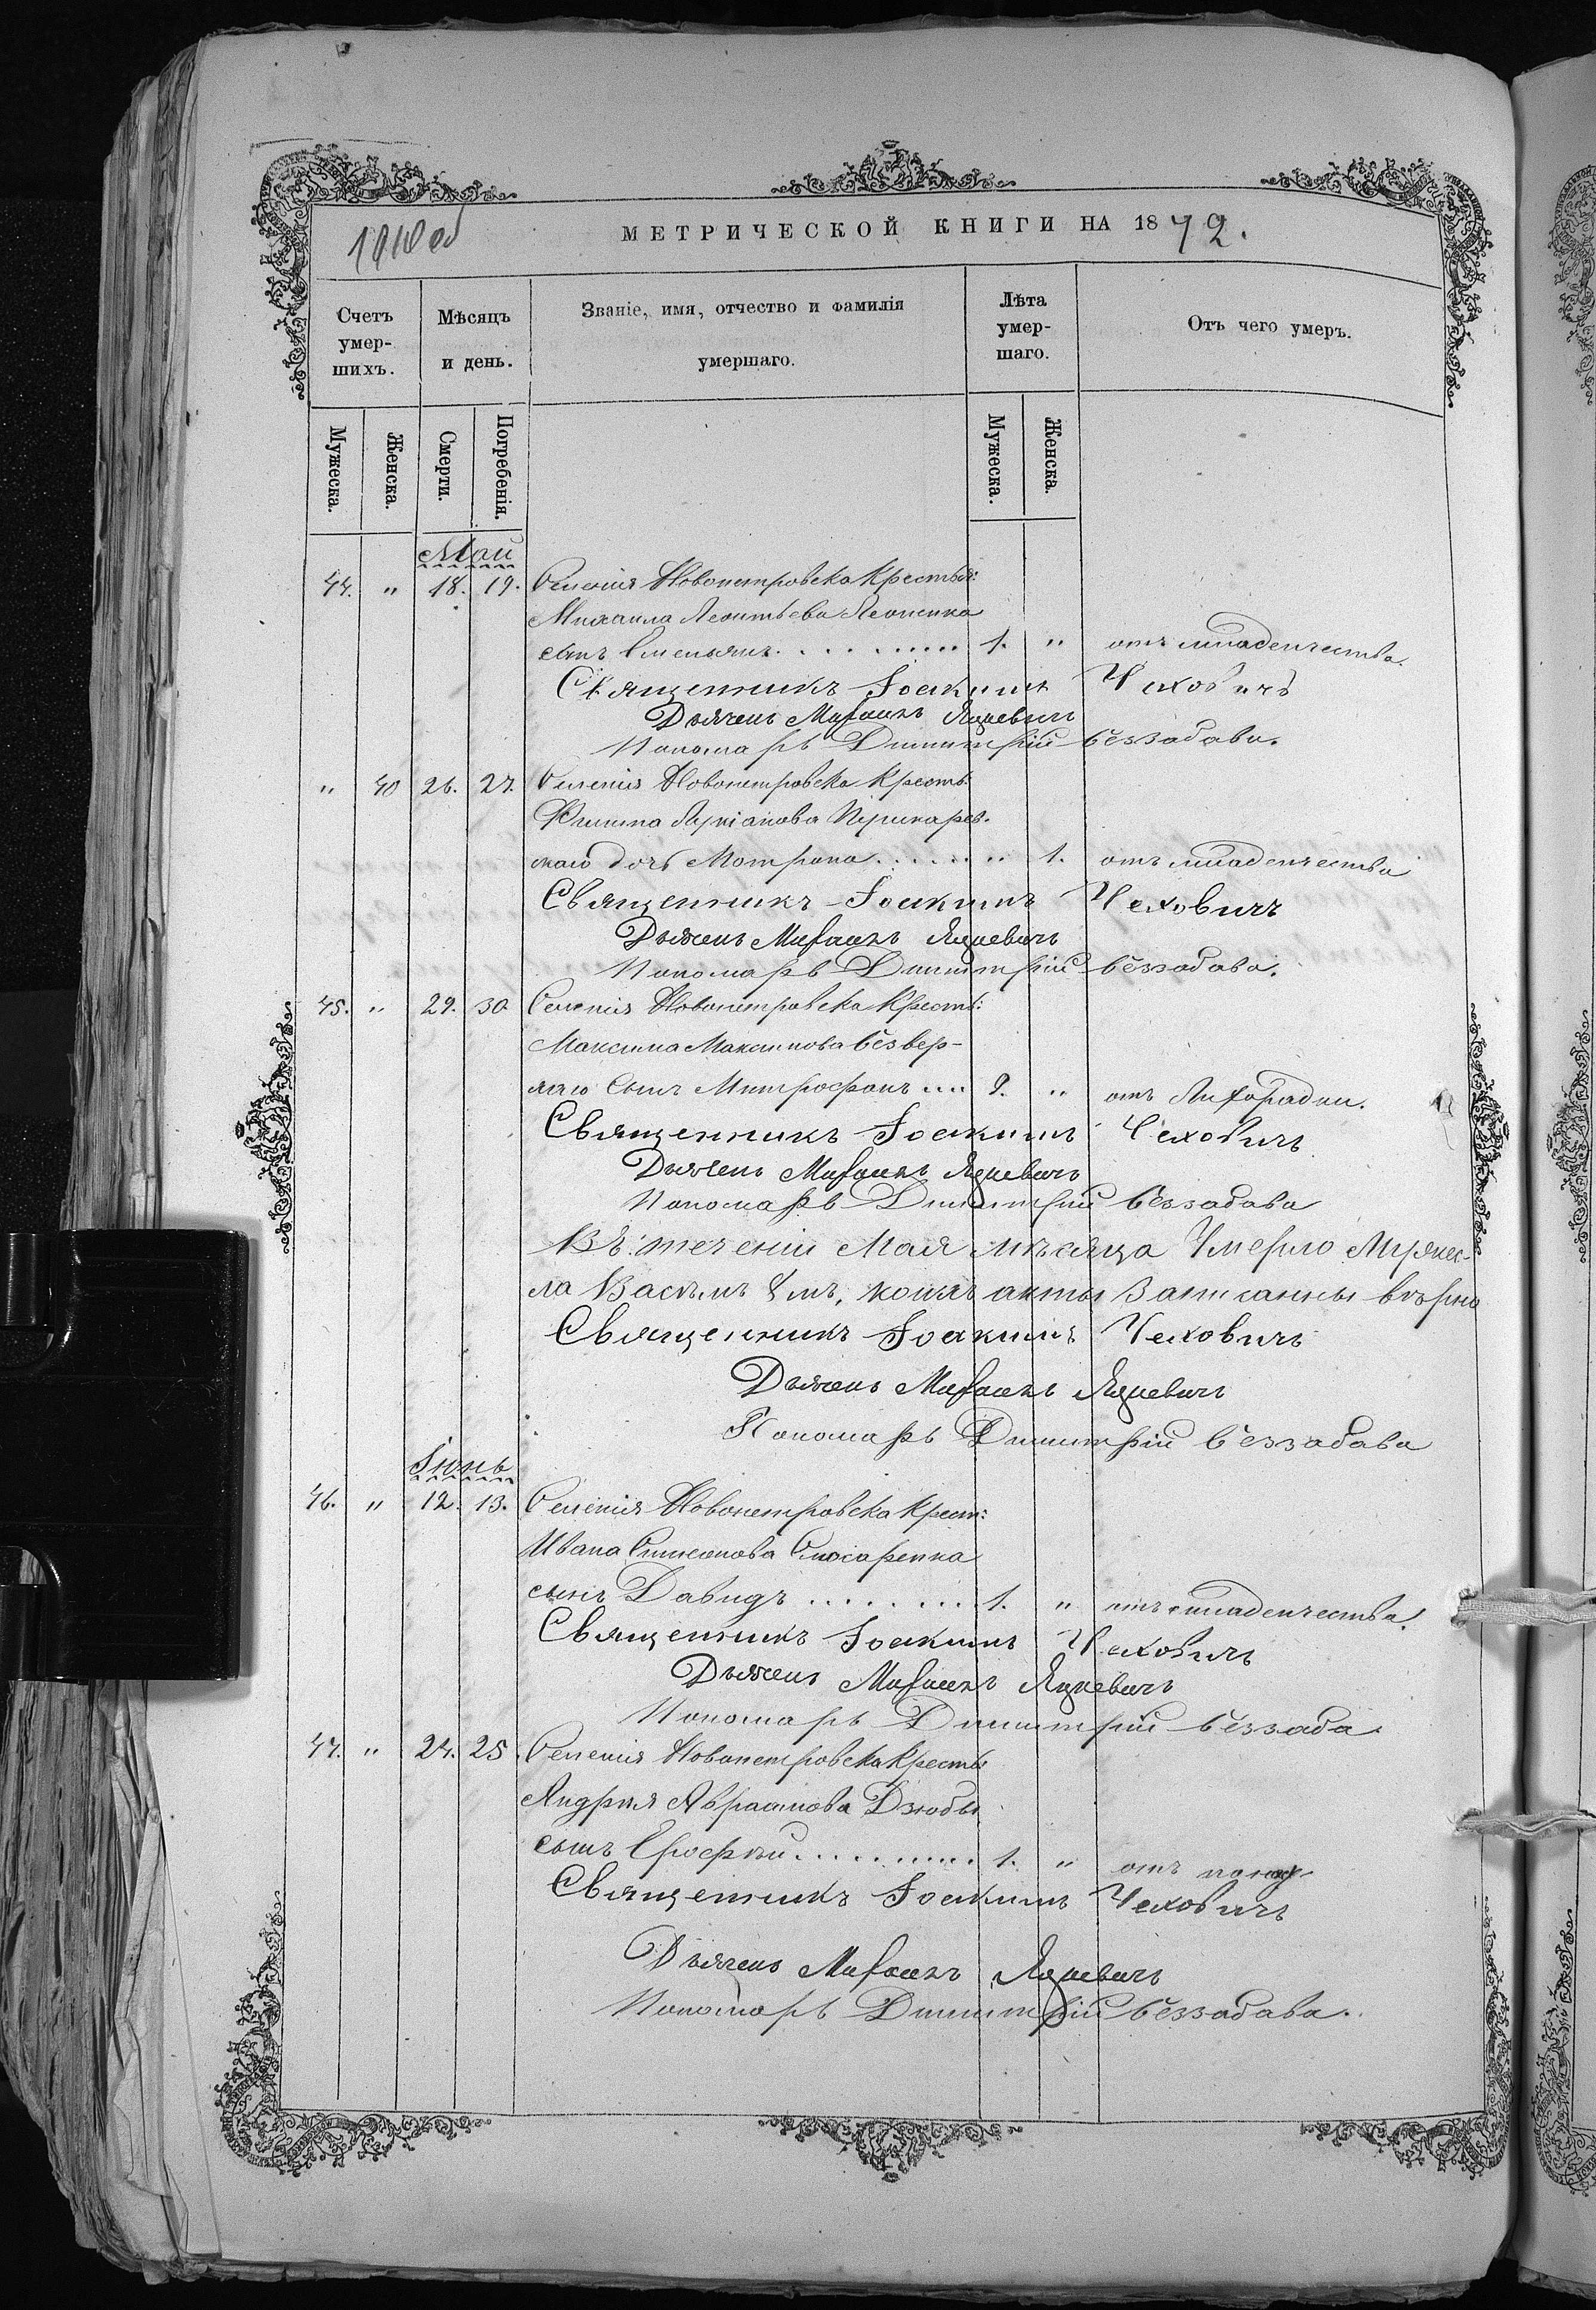 МЕТРИЧЕСКОЙ КНИГИ НА 1872.
Счетъ умершихъ.
Мѣсяцъ и день.
Званіе, имя, отчество и фамилія умершаго.
Лѣта умершаго.
Отъ чего умеръ.
Мужеска. Женска. Смерти. Погребенія. Мужеска. Женска.
Май
44. " 18. 19. Селенія Новопетровска Крестья:
Михаила Леонтьева Леоненка
сынъ Емельянъ 1. " отъ младенчества.
Священникъ Іоакимъ Чеховичъ
Дьячекъ Михаилъ Яцкевичъ
Пономарь Димитрій Беззабава.
" 40 26. 27. Селенія Новопетровска Крестъ:
Филипа Лукіанова Пушкарев-
скаго дочь Мотрона " 1. отъ младенчества
Священникъ Іоакимъ Чеховичъ
Дьячекъ Михаилъ Яцкевичъ
Пономарь Димитрій Беззабава.
45. " 29. 30 Селенія Новопетровска Крестъ:
Максима Максимова Безвер-
хаго Сынъ Митрофанъ 2. " отъ Лихорадки.
Священникъ Іоакимъ Чеховичъ
Дьячекъ Михаилъ Яцкевичъ
Пономарь Димитрій Беззабава
Въ теченіи Мая мѣсяца Умерло Мужес-
ка Васемъ 8мь, коихъ акты Записанны вѣрно
Священникъ Іоакимъ Чеховичъ
Дьячекъ Михаилъ Яцкевичъ
Пономарь Димитрій Беззабава
Іюнь
46. " 12. 13. Селенія Новопетровска Крест:
Ивана Симеонова Слюсаренка
сынъ Давидъ 1. " отъ младенчества.
Священникъ Іоакимъ Чеховичъ
Дьячекъ Михаилъ Яцкевичъ
Пономарь Димитрій Беззаба
47. " 24. 25 Селенія Новопетровска Кресть:
Андрея Авраамова Дзюбы
сынъ Ерофѣй 1. " отъ
Священникъ Іоакимъ Чеховичъ
Дьячекъ Михаилъ Яцкевичъ
Пономарь Димитрій Беззабава.